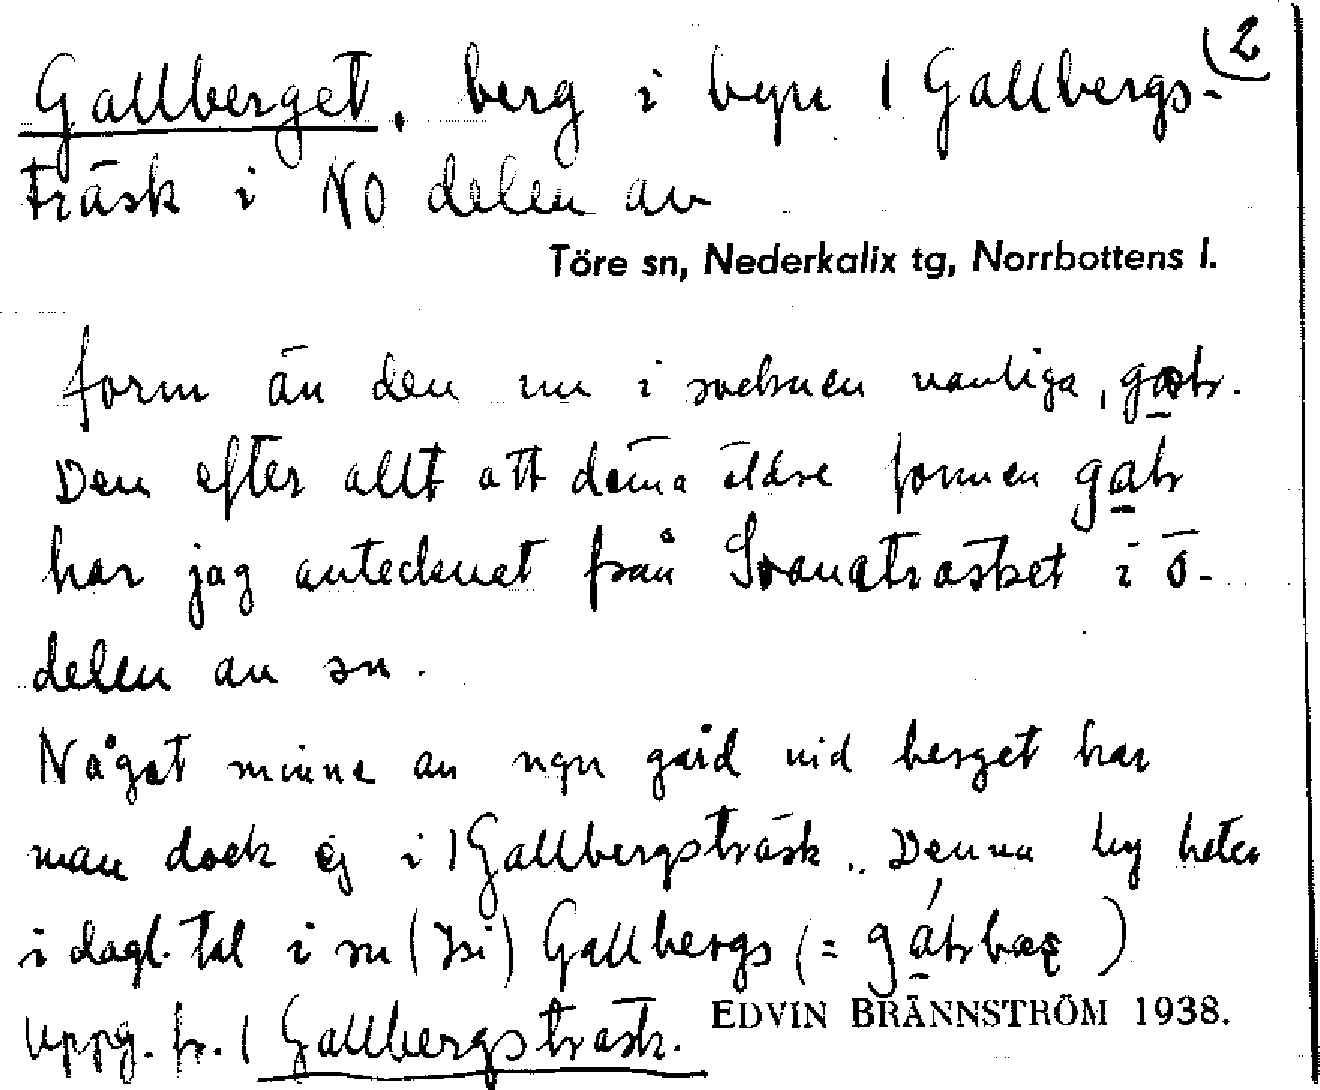 2
Gallberget, berg i byn 1 Gallbergs-
träsk i NO delen av
Töre sn, Nederkalix tg, Norrbottens l.
form än den nu i socknen vanliga,
Den efter allt att döma äldre formen
har jag antecknat från Svanaträsket i ö-
delen av sn.
Något minne av ngn gård vid berget har
man dock ej i 1 Gallbergsträsk. Denna by heter
i dagl. tal i sn Gallbergs (=
Uppg. fr. 1 Gallbergsträsk.
EDVIN BRÄNNSTRÖM 1938.